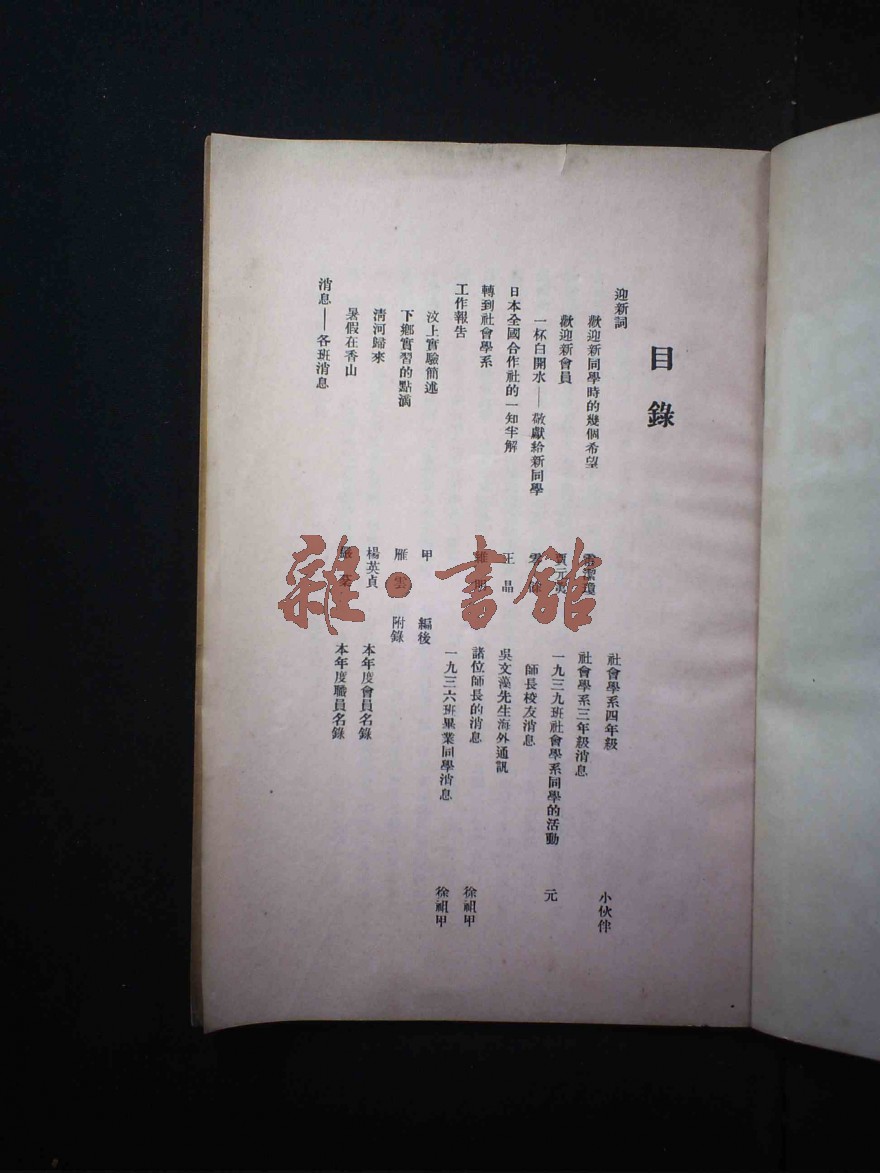 目錄
迎新詞
歡迎新同學時的幾個希望
歡迎新會員
一杯白開水——敬獻給新同學
日本全國合作社的一知半解 王晶
轉到社會學系
工作報告
汶上實驗簡述 甲
下鄉實習的點滴 雁雲
淸河歸來 楊英貞
暑假在香山
消息——各班消息
社會學系四年級 小伙伴
社會學系三年級消息
一九三九班社會學系同學的活動 元
師長校友消息
吳文藻先生海外通訊
諸位師長的消息 徐祖甲
一九三六班畢業同學消息 徐祖甲
編後
附錄
本年度會員名錄
本年度職員名錄
雜·書館